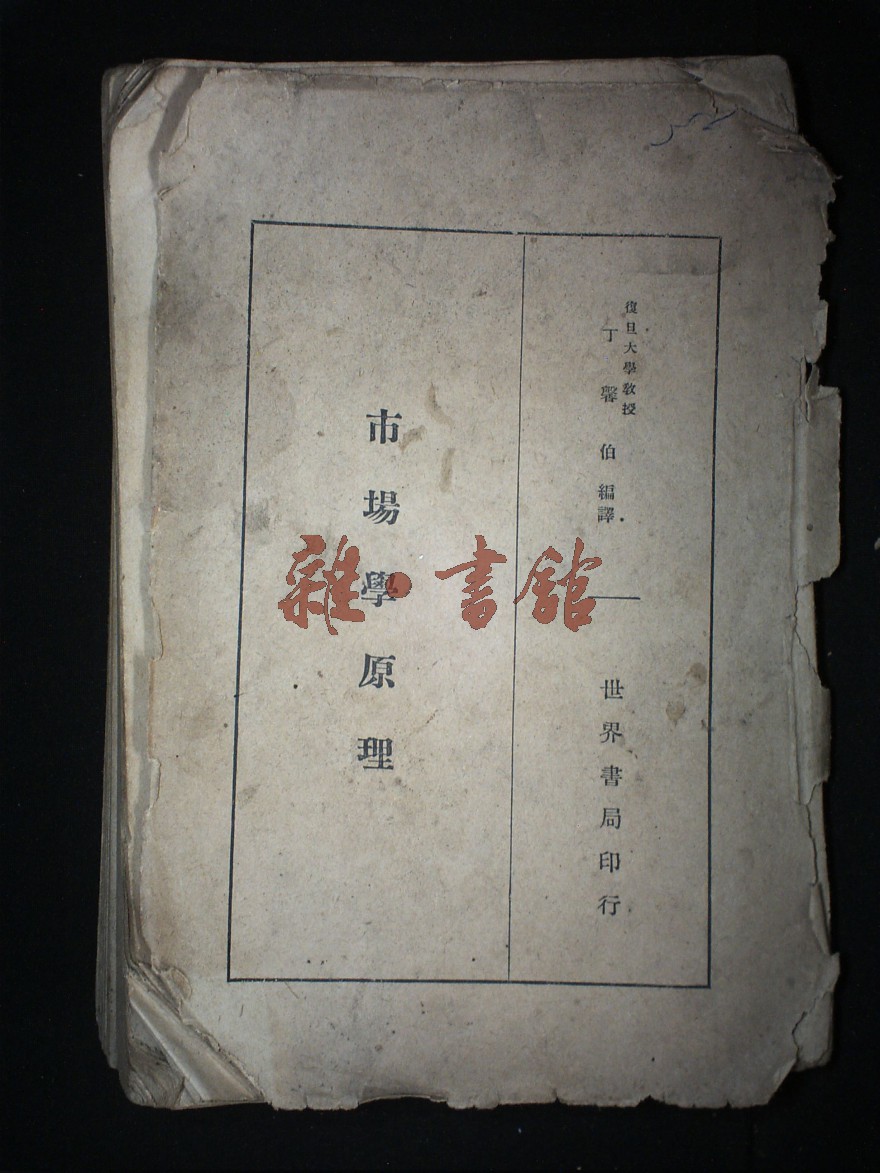 復旦大學教授
丁馨伯編譯
世界書局印行
市場學原理
雜·書館